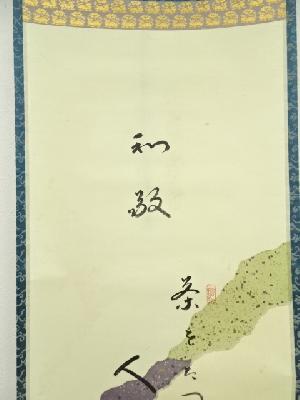 和敬
茶をたつ
人